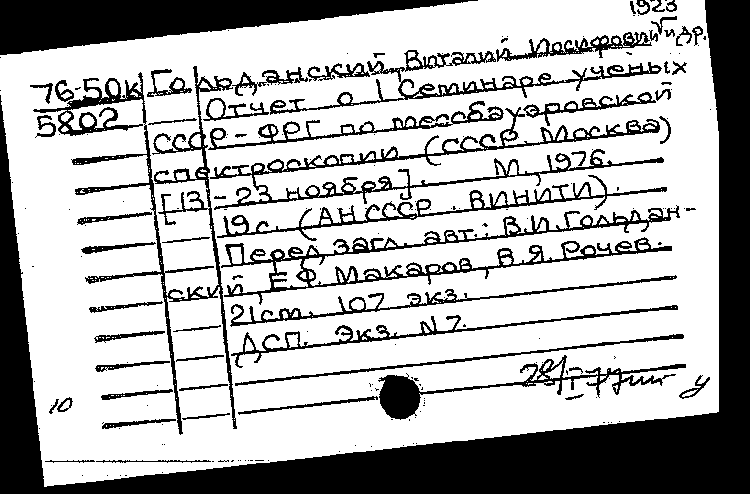 1923
76-50к Гольданский, Виталий Иосифович и др.
5802 Отчет о I Семинаре ученых
СССР-ФРГ по мессбауэровской
спектроскопии (СССР. Москва)
[13-23 ноября]. М., 1976.
19с. (АН СССР. ВИНИТИ).
Перед загл. авт.: В.И.Гольдан-
ский, Е.Ф. Макаров, В.Я. Рочев.
21см. 107 экз.
ДСП. Экз. N7.
10 у